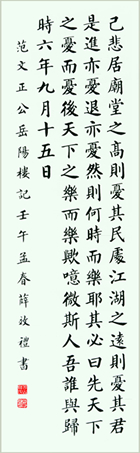 己悲居廟堂之高則憂其民處江湖之遠則憂其君
是進亦憂退亦憂然則何時而樂耶其必曰先天下
之憂而憂後天下之樂而樂歟噫微斯人吾誰與歸
時六年九月十五日
范文正公岳陽樓記壬午孟春薛啟禮書